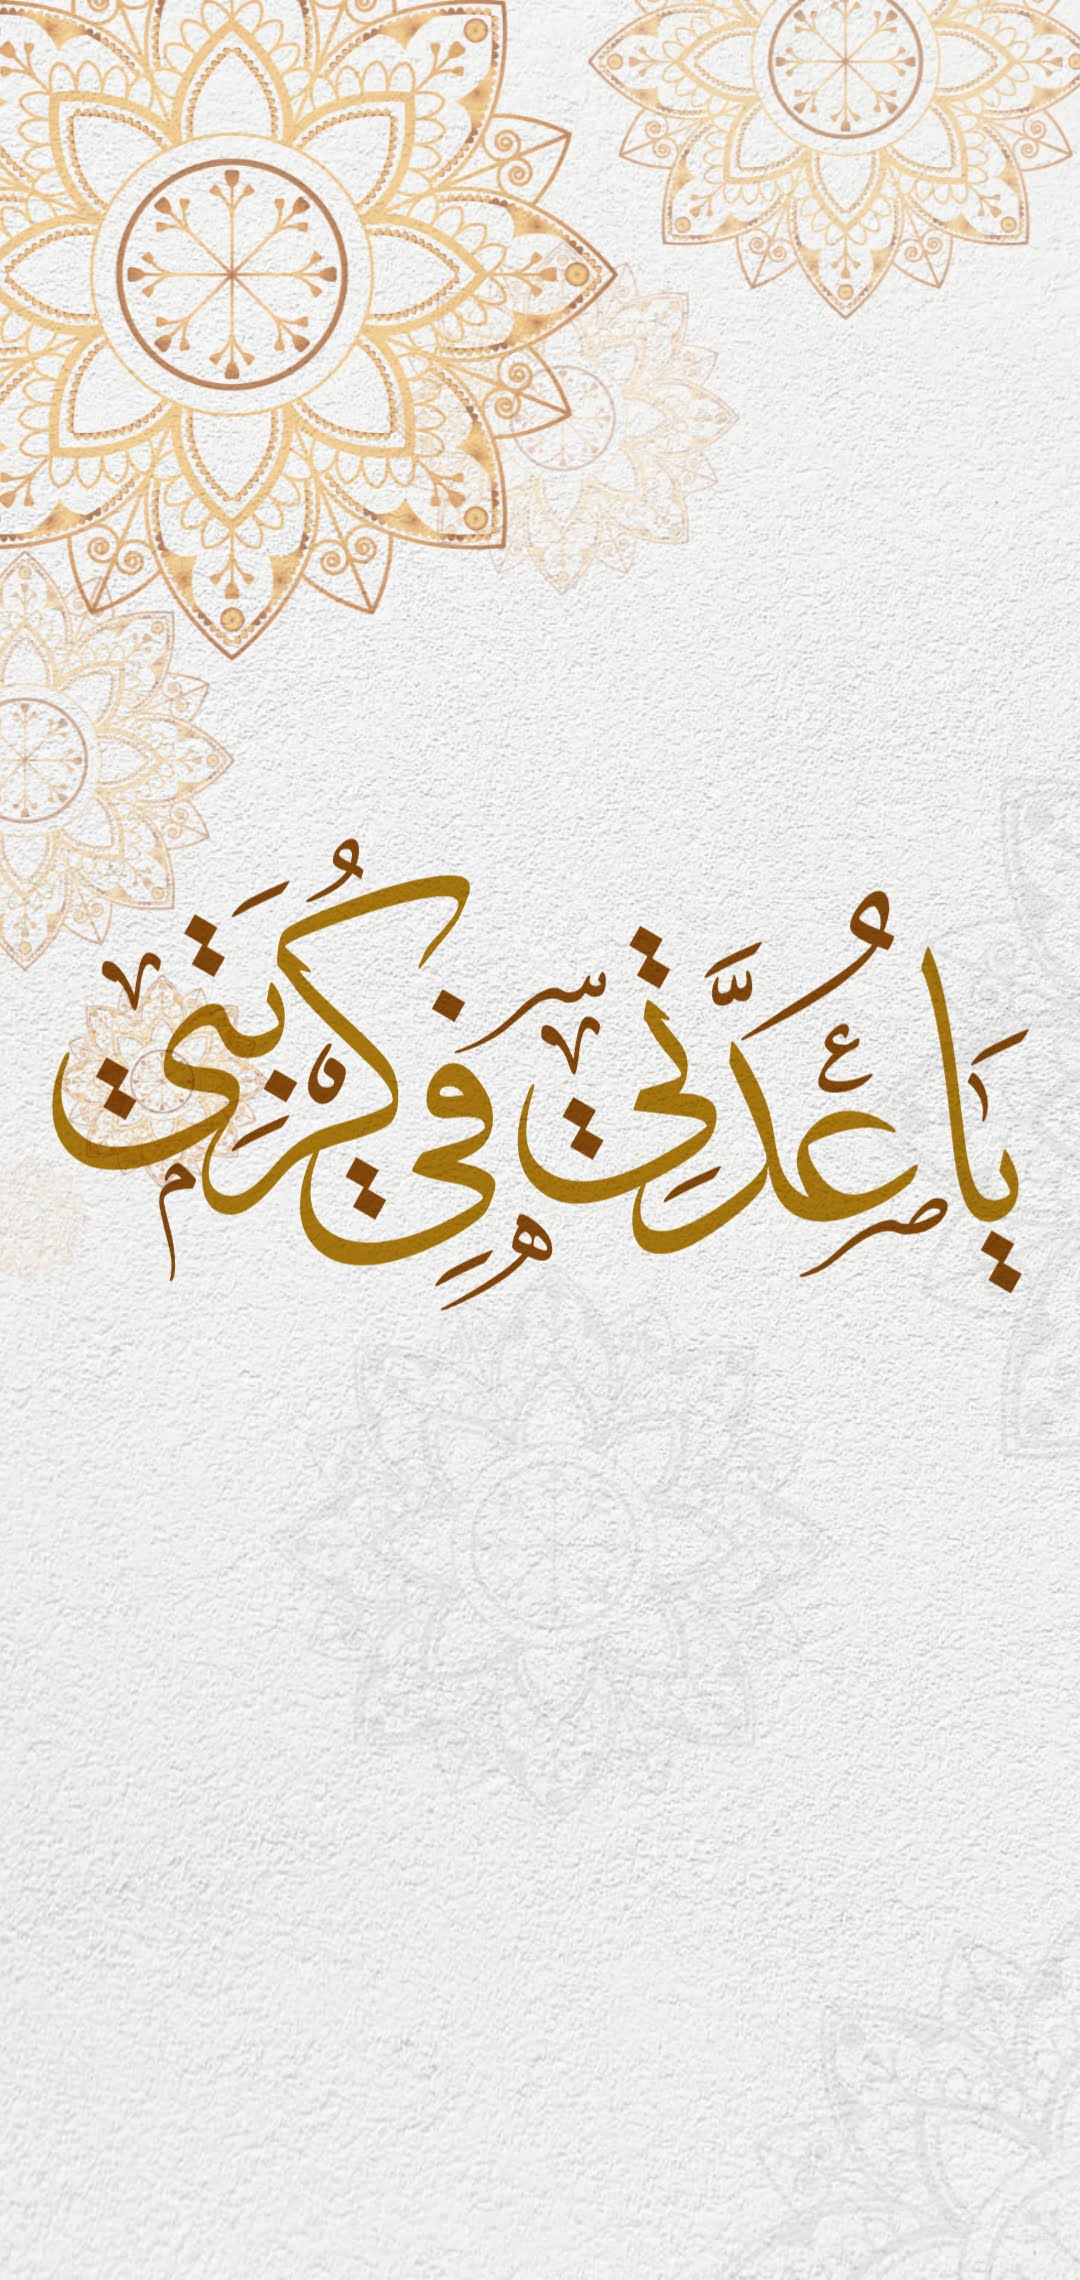 يَا عُدَّتِي فِي كُرْبَتِي